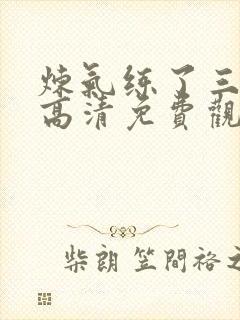 煉氣练了三
高清免費觀
柴朗 笠間裕之